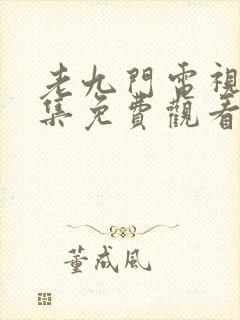 老九門電視
集免費觀看
董成風